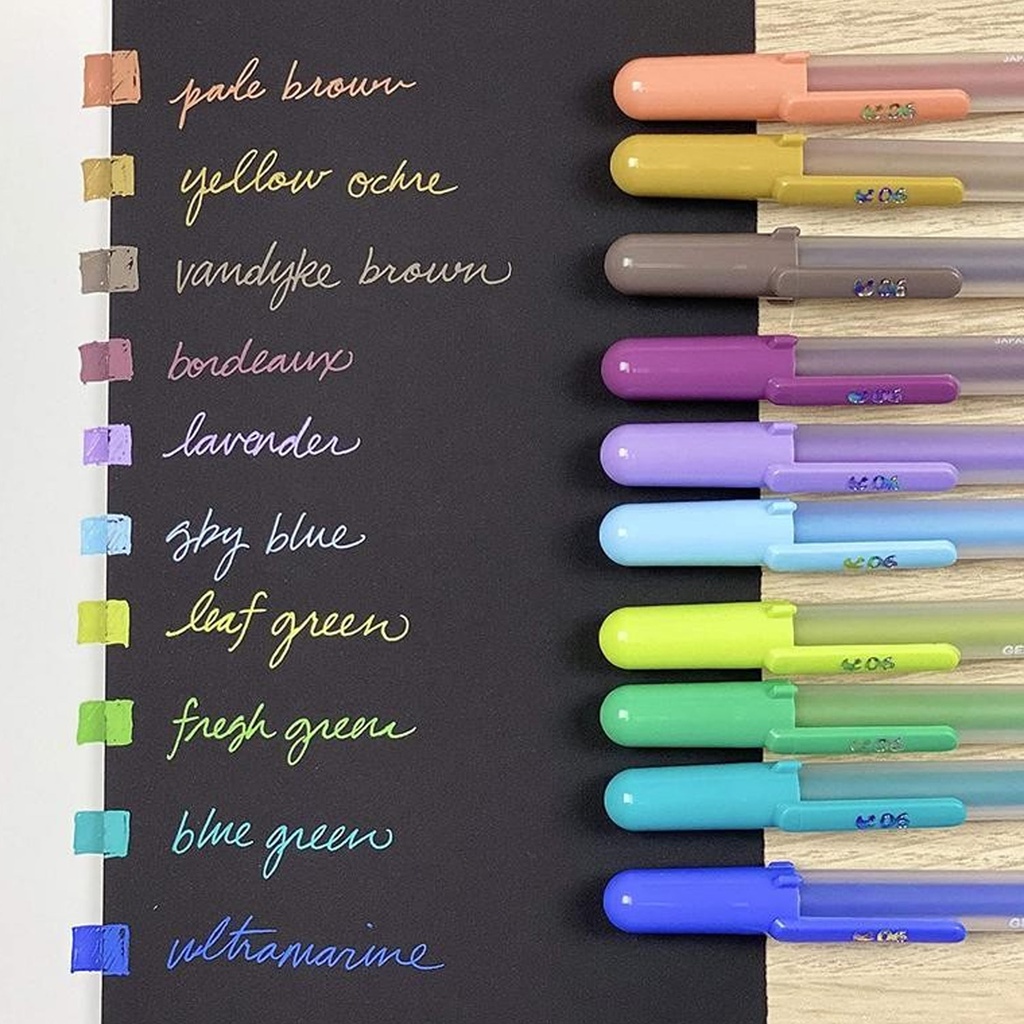 pale brown
JAPA
06
yellow ochre
06
vandyke brown
06
bordeaux
JAPA
06
lavender
06
sky blue
06
leaf green
GE
06
fresh green
06
blue green
06
ultramarine
06